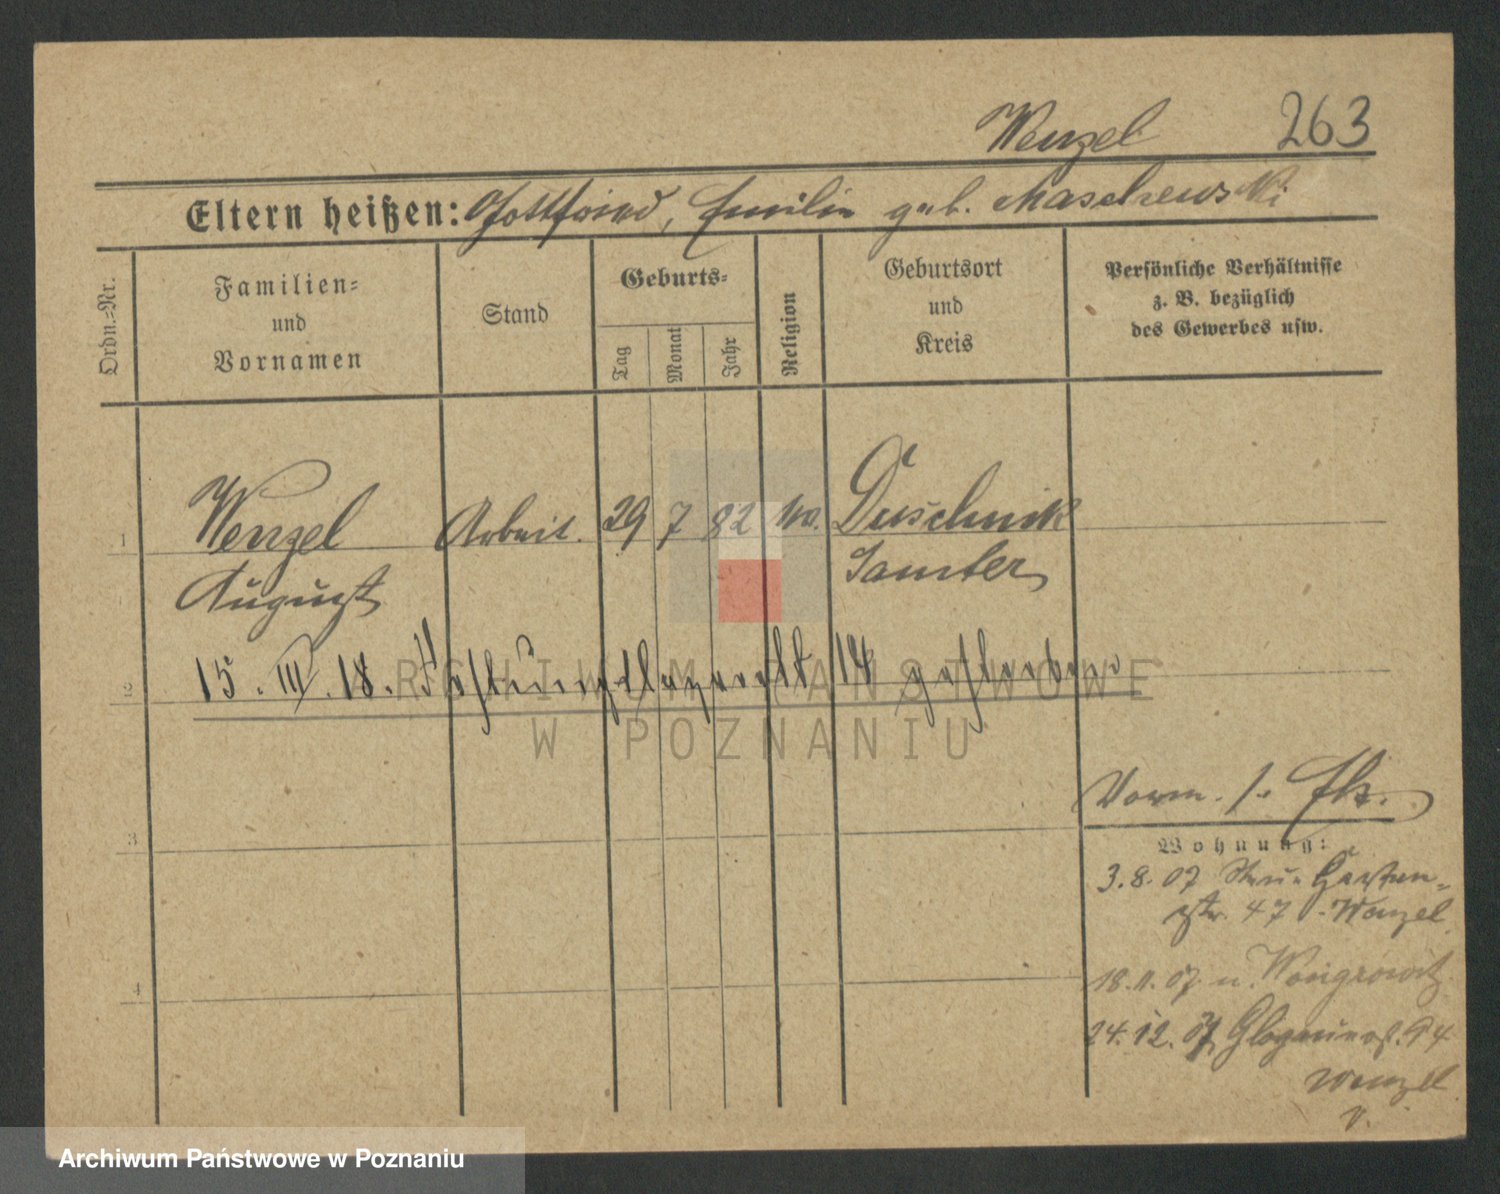 Wenzel 263
Eltern heißen: Gottfried, Emilie geb. Maschewski
Ordn.-Nr.
Familien-
und
Vornamen
Stand
Geburts-
Tag
Monat
Jahr
Religion
Geburtsort
und
Kreis
Persönliche Verhältnisse
z. B. bezüglich
des Gewerbes usw.
1 Wenzel Arbeit. 29 7 82 Duschnik
August Samter
2 15. III. 18. Festungslazarett 14 gestorben
ARCHIWUM PAŃSTWOWE
W POZNANIU
Vorm. s. Fk.
3
Wohnung:
3.8.07 Garten-
str. 47 Wenzel
4
18.11.07. n. Wongrowitz
24.12.07 Glogauerst. 94
Wenzel
v.
Archiwum Państwowe w Poznaniu